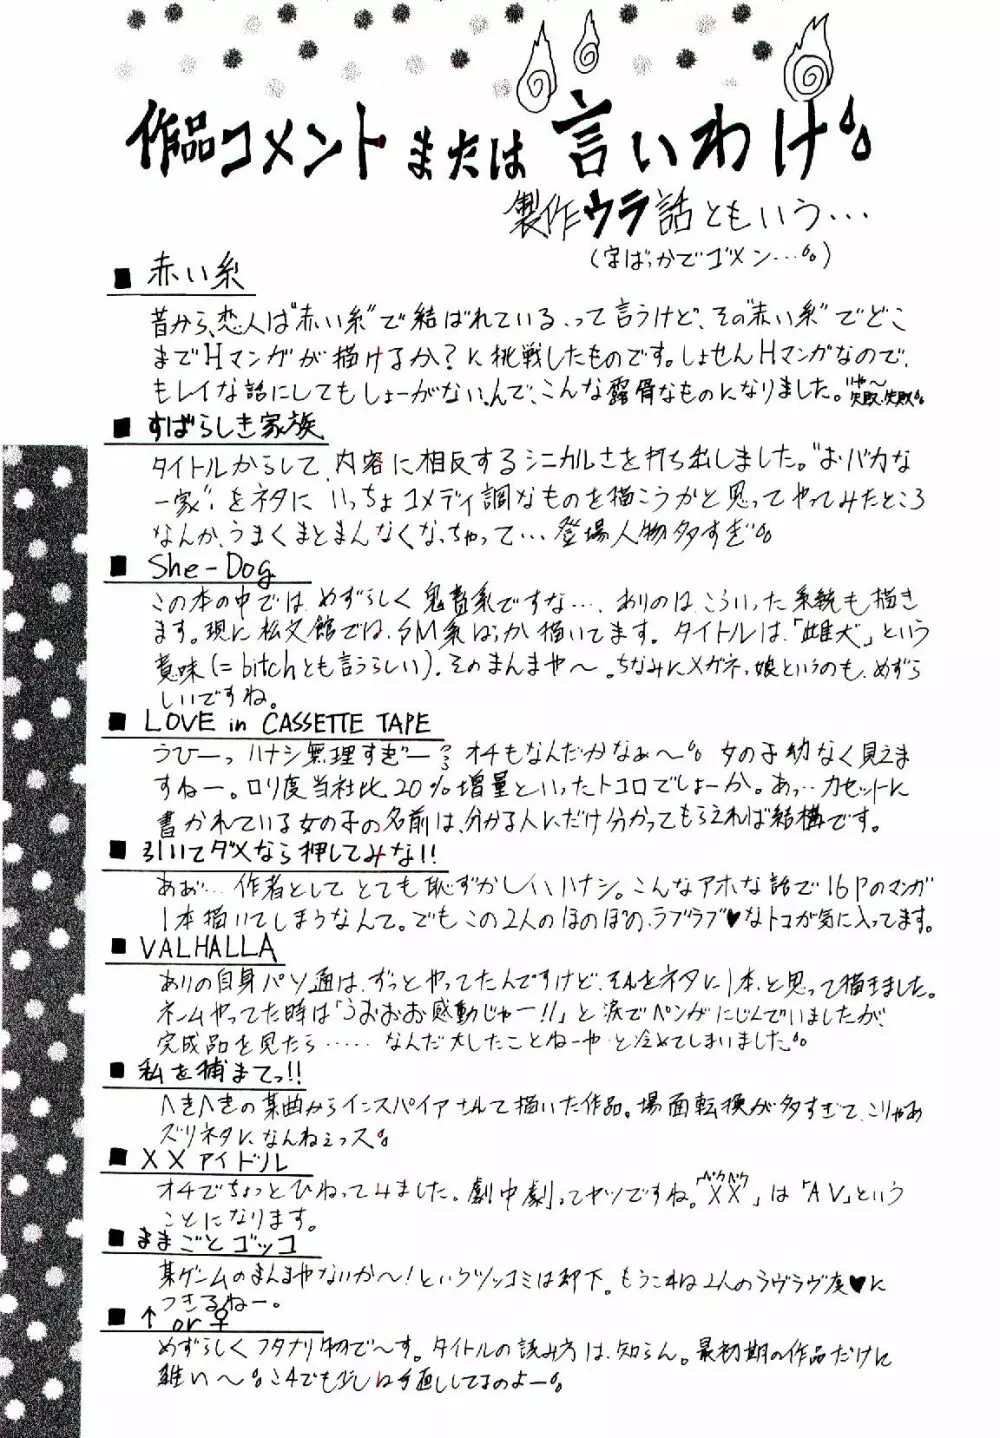 作品コメント または 言いわけ
製作ウラ話ともいう…
(字ばっかでゴメン…)
■ 赤い糸
昔から、恋人は"赤い糸"で結ばれている、って言うけど、その"赤い糸"でどこ
までHマンガが描けるか?に挑戦したものです。しょせんHマンガなので、
キレイな話にしてもしょーがないんで、こんな露骨なものになりました。いや〜失敗、失敗
■ すばらしき家族
タイトルからして、内容に相反するシニカルさを打ち出しました。"おバカな
一家"をネタに いっちょコメディ調なものを描こうかと思ってやってみたところ
なんか、うまくまとまんなくなっちゃって…登場人物多すぎ
■ She-Dog
この本の中では、めずらしく鬼畜系ですな…、ありのは、こういった系統も描き
ます。現に松文館では、SM系ばっか描いてます。タイトルは、「雌犬」という
意味(=bitchとも言うらしい)、そのまんまや〜。ちなみにメガネっ娘というのも、めずら
しいですね。
■ LOVE in CASSETTE TAPE
うひーっ ハナシ無理すぎー オチもなんだかなぁ〜 女の子幼なく見えま
すねー。ロリ度当社比20%増量といったトコロでしょーか。あっ…カセットに
書かれている女の子の名前は、分かる人にだけ分かってもらえれば結構です。
■ 引いてダメなら押してみな!!
あぉ… 作者として とても恥ずかしいハナシ。こんなアホな話で16Pのマンガ
1本描いてしまうなんて。でもこの2人のほのぼの、ラブラブ♥なトコが気に入ってます。
■ VALHALLA
ありの自身パソ通は、ずっとやってたんですけど、それをネタに1本、と思って描きました。
ネームやってた時は「うおおお感動じゃー!!」と涙でペンがにじんでいましたが、
完成品を見たら…… なんだ大したことねーや と冷めてしまいました。
■ 私を捕まてっ!!
へきへきの某曲からインスパイアされて描いた作品。場面転換が多すぎて、こりゃあ
ズリネタに、なんねぇっス
■ XXアイドル
オチでちょっとひねってみました。劇中劇ってヤツですね。「XX」は「AV」という
ことになります。
■ ままごとゴッコ
某ゲームのまんまやないか〜!というツッコミは却下。もうこれは2人のラヴラヴ度♥に
つきるねー。
■ ↑ or ♀
めずらしくフタナリ物で〜す。タイトルの読み方は、知らん。最初期の作品だけに
難い〜 これでも少しは手直ししてるのよー